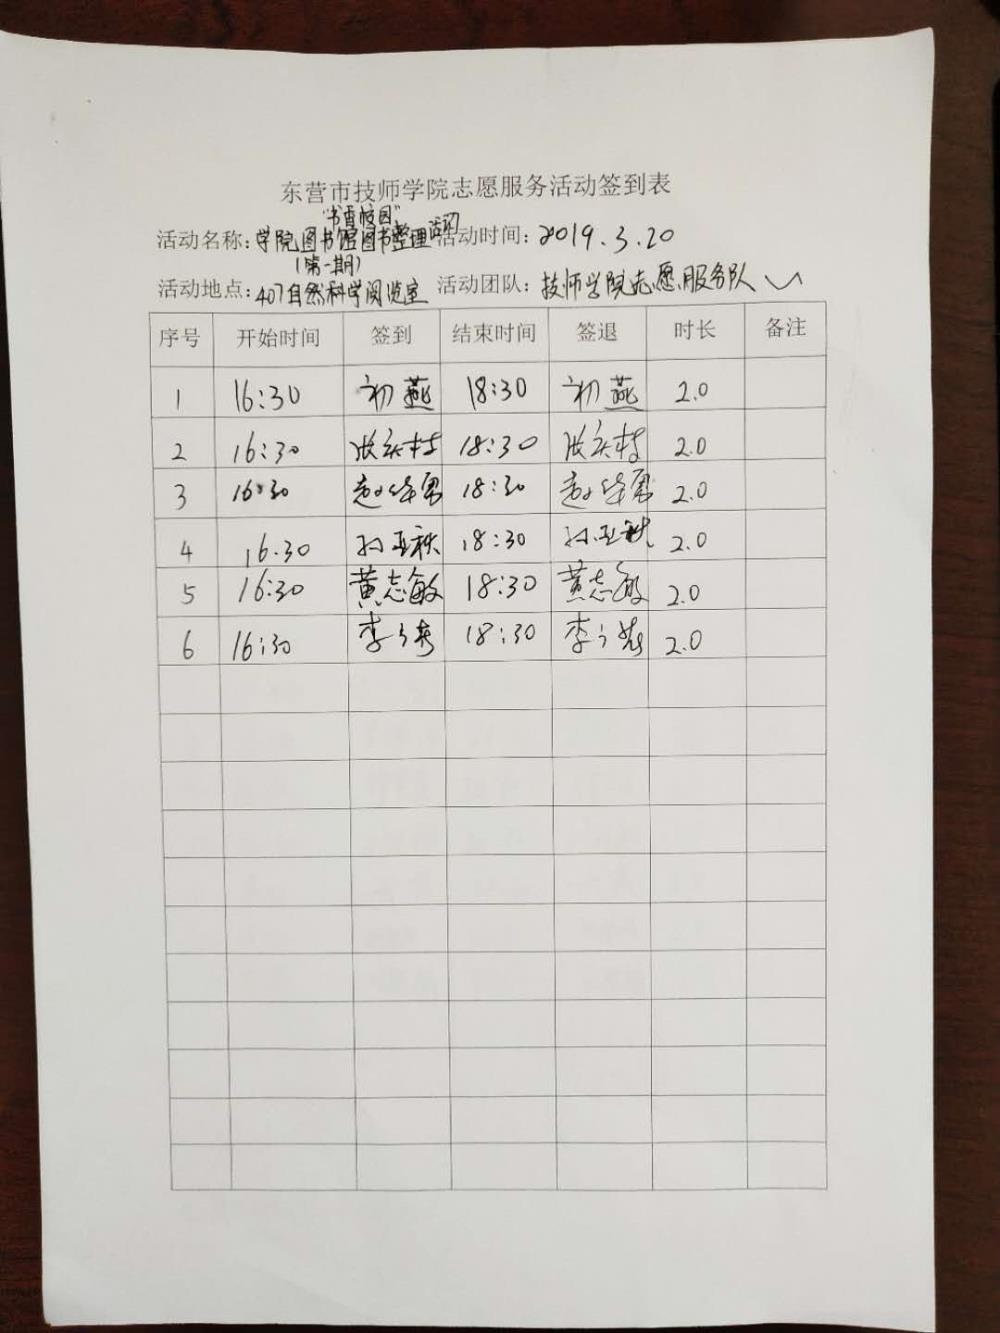 东营市技师学院志愿服务活动签到表
"书香校园"
活动名称:学院图书馆图书整理活动 活动时间:2019.3.20
(第一期)
活动地点:407自然科学阅览室 活动团队:技师学院志愿服务队
序号 开始时间 签到 结束时间 签退 时长 备注
1 16:30 初燕 18:30 初燕 2.0
2 16:30 18:30 2.0
3 16:30 18:30 2.0
4 16.30 孙亚秋 18:30 孙亚秋 2.0
5 16:30 黄志敏 18:30 黄志敏 2.0
6 16:30 18:30 2.0